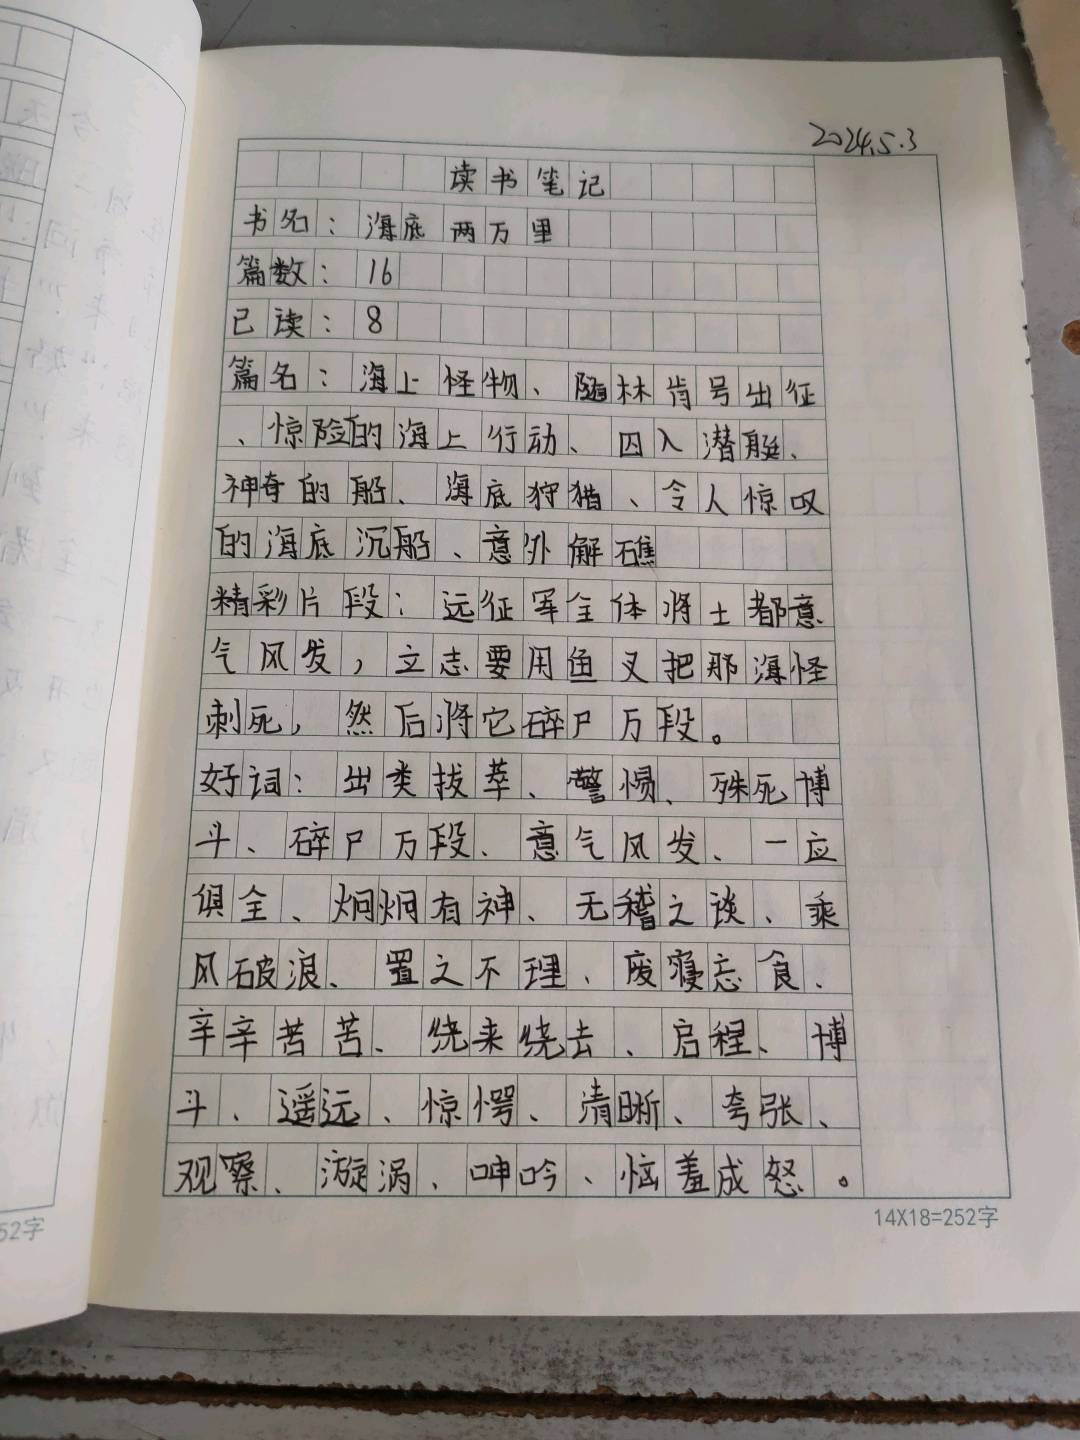 2024.5.3
读书笔记
书名：海底两万里
篇数：16
已读：8
篇名：海上怪物、随林肯号出征
、惊险的海上行动、囚入潜艇、
神奇的船、海底狩猎、令人惊叹
的海底沉船、意外解礁
精彩片段：远征军全体将士都意
气风发，立志要用鱼叉把那海怪
刺死，然后将它碎尸万段。
好词：出类拔萃、警惕、殊死博
斗、碎尸万段、意气风发、一应
俱全、炯炯有神、无稽之谈、乘
风破浪、置之不理、废寝忘食、
辛辛苦苦、绕来绕去、启程、博
斗、遥远、惊愕、清晰、夸张、
观察、漩涡、呻吟、恼羞成怒。
14X18=252字
52字